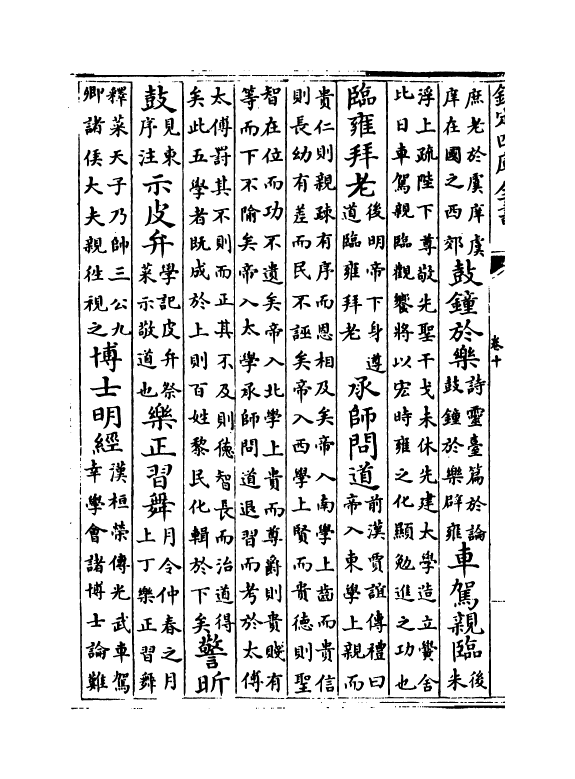 欽定四庫全書
卷十
庶老於虞庠虞庠在國之西郊鼓鐘於樂詩靈臺篇於論鼓鐘於樂辟雍車駕親臨後朱
浮上疏陛下尊敬先聖干戈未休先建太學造立黌舍
比日車駕親臨觀饗將以宏時雍之化顯勉進之功也
臨雍拜老後明帝下身遵道臨雍拜老承師問道前漢賈誼傳禮曰帝入東學上親而
貴仁則親疎有序而恩相及矣帝入南學上齒而貴信
則長幼有差而民不誣矣帝入西學上賢而貴德則聖
智在位而功不遺矣帝入北學上貴而尊爵則貴賤有
等而下不隃矣帝入太學承師問道退習而考於太傅
太傅罰其不則而正其不及則德智長而治道得
矣此五學者既成於上則百姓黎民化輯於下矣警昕
鼓見東序注示皮弁學記皮弁祭菜示敬道也樂正習舞月令仲春之月上丁樂正習舞
釋菜天子乃帥三公九卿諸侯大夫親徃視之博士明經漢桓榮傳光武車駕幸學會諸博士論難